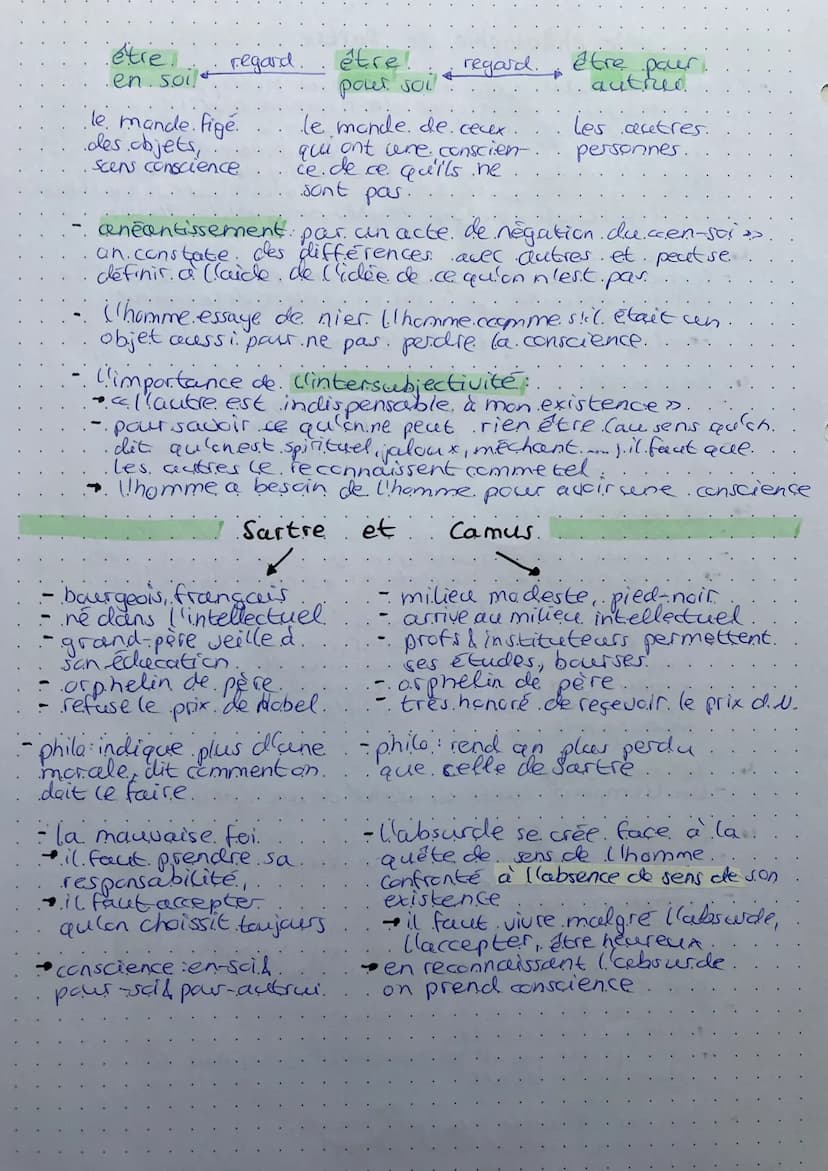 être regard être regard être pour
en soi pour soi autrui
le monde figé
des objets,
sans conscience
le monde de ceux
qui ont une conscien-
ce de ce qu'ils ne
sont pas.
les autres
personnes.
- anéantissement: par un acte de négation du «en-soi»
on constate des différences avec autres et peut se
définir à l'aide de l'idée de ce qu'on n'est pas
- l'homme essaye de nier l'homme comme s'il était un
objet aussi pour ne pas perdre la conscience.
- l'importance de l'intersubjectivité:
→ «l'autre est indispensable à mon existence».
- pour savoir ce qu'on ne peut rien être (au sens qu'on
dit qu'on est spirituel, jaloux, méchant ...) il faut que
les autres le reconnaissent comme tel.
→ l'homme a besoin de l'homme pour avoir une conscience
Sartre et Camus
- bourgeois, français
- né dans l'intellectuel
- grand-père veille à
son éducation
- orphelin de père
- refuse le prix de Nobel.
- philo: indique plus d'une
morale, dit comment on
doit le faire
- la mauvaise foi
→ il faut prendre sa
responsabilité,
→ il faut accepter
qu'on choissit toujours
→ conscience: en-soi &
pour-soi & pour-autrui
- milieu modeste, pied-noir
- arrive au milieu intellectuel
- profs & instituteurs permettent
ses études, bourses
- orphelin de père
- très honoré de reçevoir le prix d.N.
- philo: rend un plus perdu
que celle de Sartre
- l'absurde se crée face à la
quête de sens de l'homme
confronté à l'absence de sens de son
existence
→ il faut vivre malgré l'absurde,
l'accepter, être heureux
→ en reconnaissant l'absurde
on prend conscience